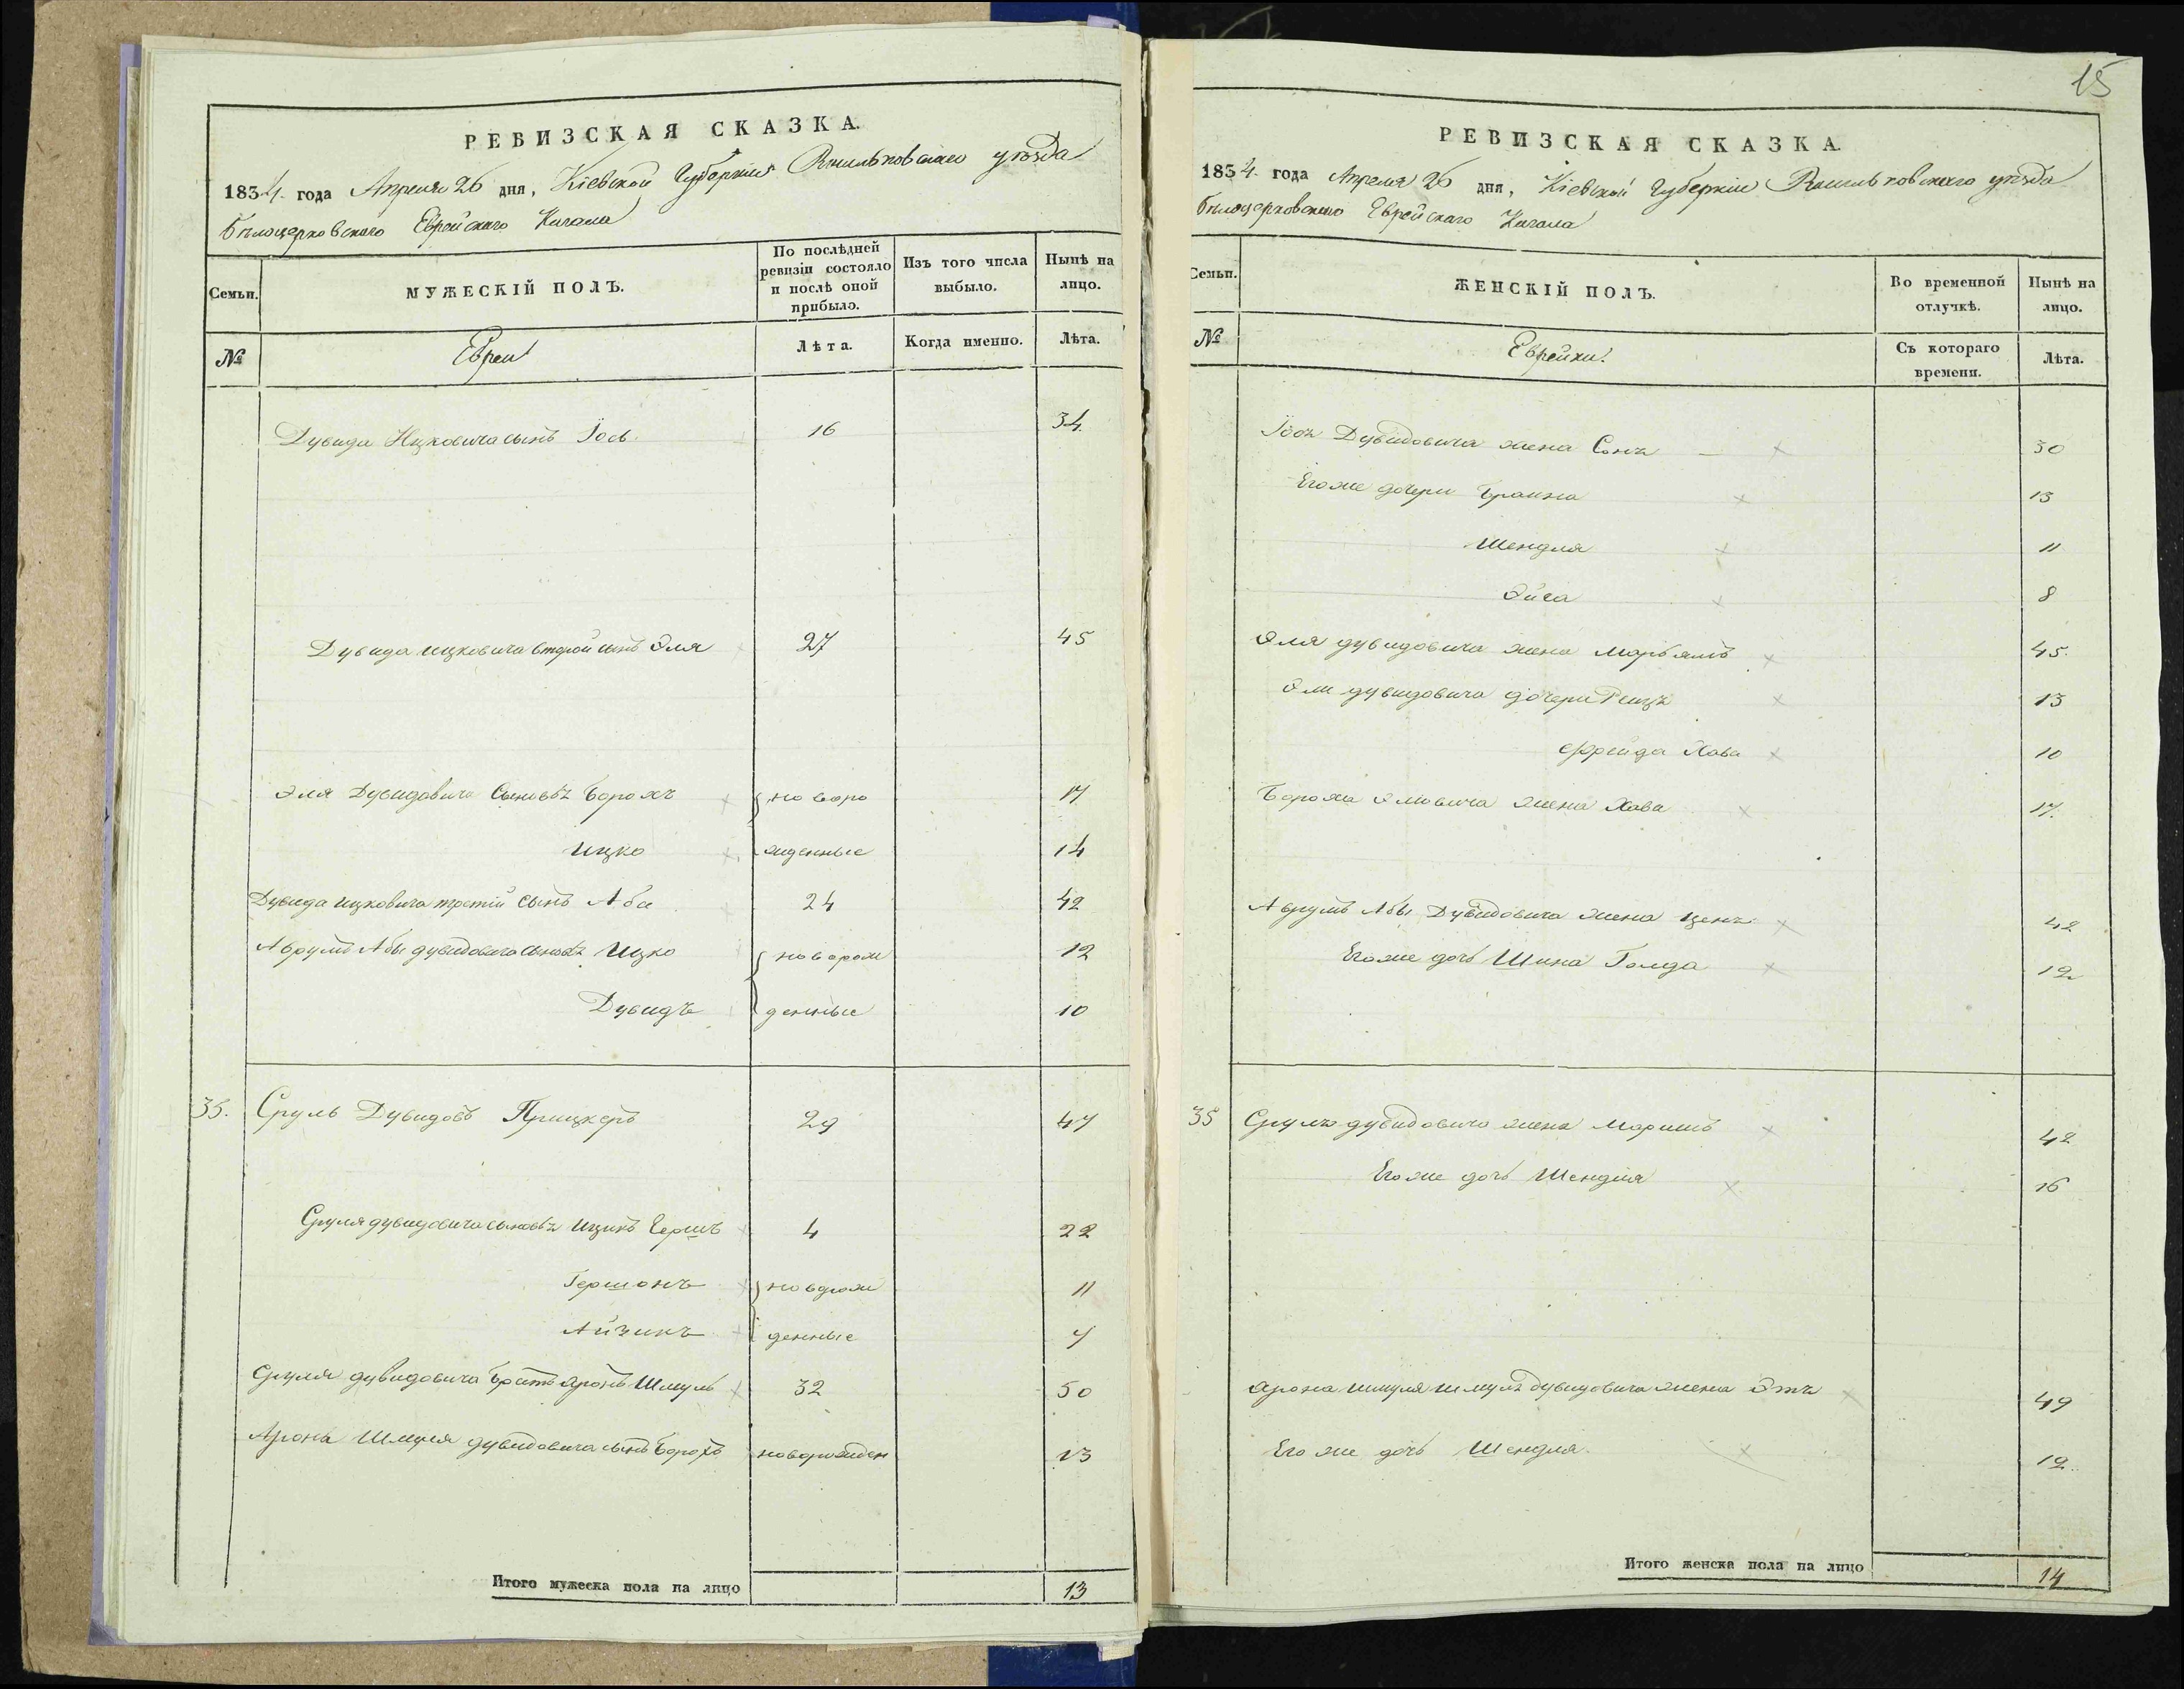 РЕВИЗСКАЯ СКАЗКА.
1834 года Апреля 26 дня, Кіевской Губерніи Васильковскаго уѣзда
Бѣлоцерковскаго Еврейскаго Кагала
Семьи.
МУЖЕСКІЙ ПОЛЪ.
По послѣдней ревизіи состояло и послѣ оной прибыло.
Изъ того числа выбыло.
Нынѣ на лицо.
№
Евреи
Лѣта.
Когда именно.
Лѣта.
Дувида Ицковича сынъ Іось 16 34
Дувида ицковича второй сынъ Эля 27 45
Эля Дувидовича Сыновъя Борохъ новоро 17
Ицко жденные 14
Дувида ицковича третій сынъ Аба 24 42
Аврумъ Абы дувидовича сыновъя Ицко новорож 12
Дувидъ денные 10
35. Сруль Дувидовъ Прицкеръ 29 47
Сруля дувидовича сыновъя Ицикъ Гершъ 4 22
Гершонъ новорож 11
Айзикъ денные 7
Сруля дувидовича братъ аронъ Шмуль 32 50
Арона Шмуля дувидовича сынъ Борохъ новорожден 13
Итого мужеска пола на лицо 13
15
РЕВИЗСКАЯ СКАЗКА.
1834 года Апреля 26 дня, Кіевской Губерніи Васильковскаго уѣзда
Бѣлоцерковскаго Еврейскаго Кагала
Семьи.
ЖЕНСКІЙ ПОЛЪ.
Во временной отлучкѣ.
Нынѣ на лицо.
№
Еврейки.
Съ котораго времени.
Лѣта.
Дувидовича жена 30
Его же дочери Браина 13
Шендля 11
8
Эля дувидовича жена Марьямъ 45
Эли дувидовича дочери 13
Фрейда Хава 10
Бороха Элиовича жена Хава 17.
Аврумъ Абы Дувидовича жена 42
Его же дочь Шина Голда 12
35 Сруля дувидовича жена 42
Его же дочь Шендля 16
Арона шмуля шмуля дувидовича жена 49
Его же дочь Шендля 12
Итого женска пола на лицо 14